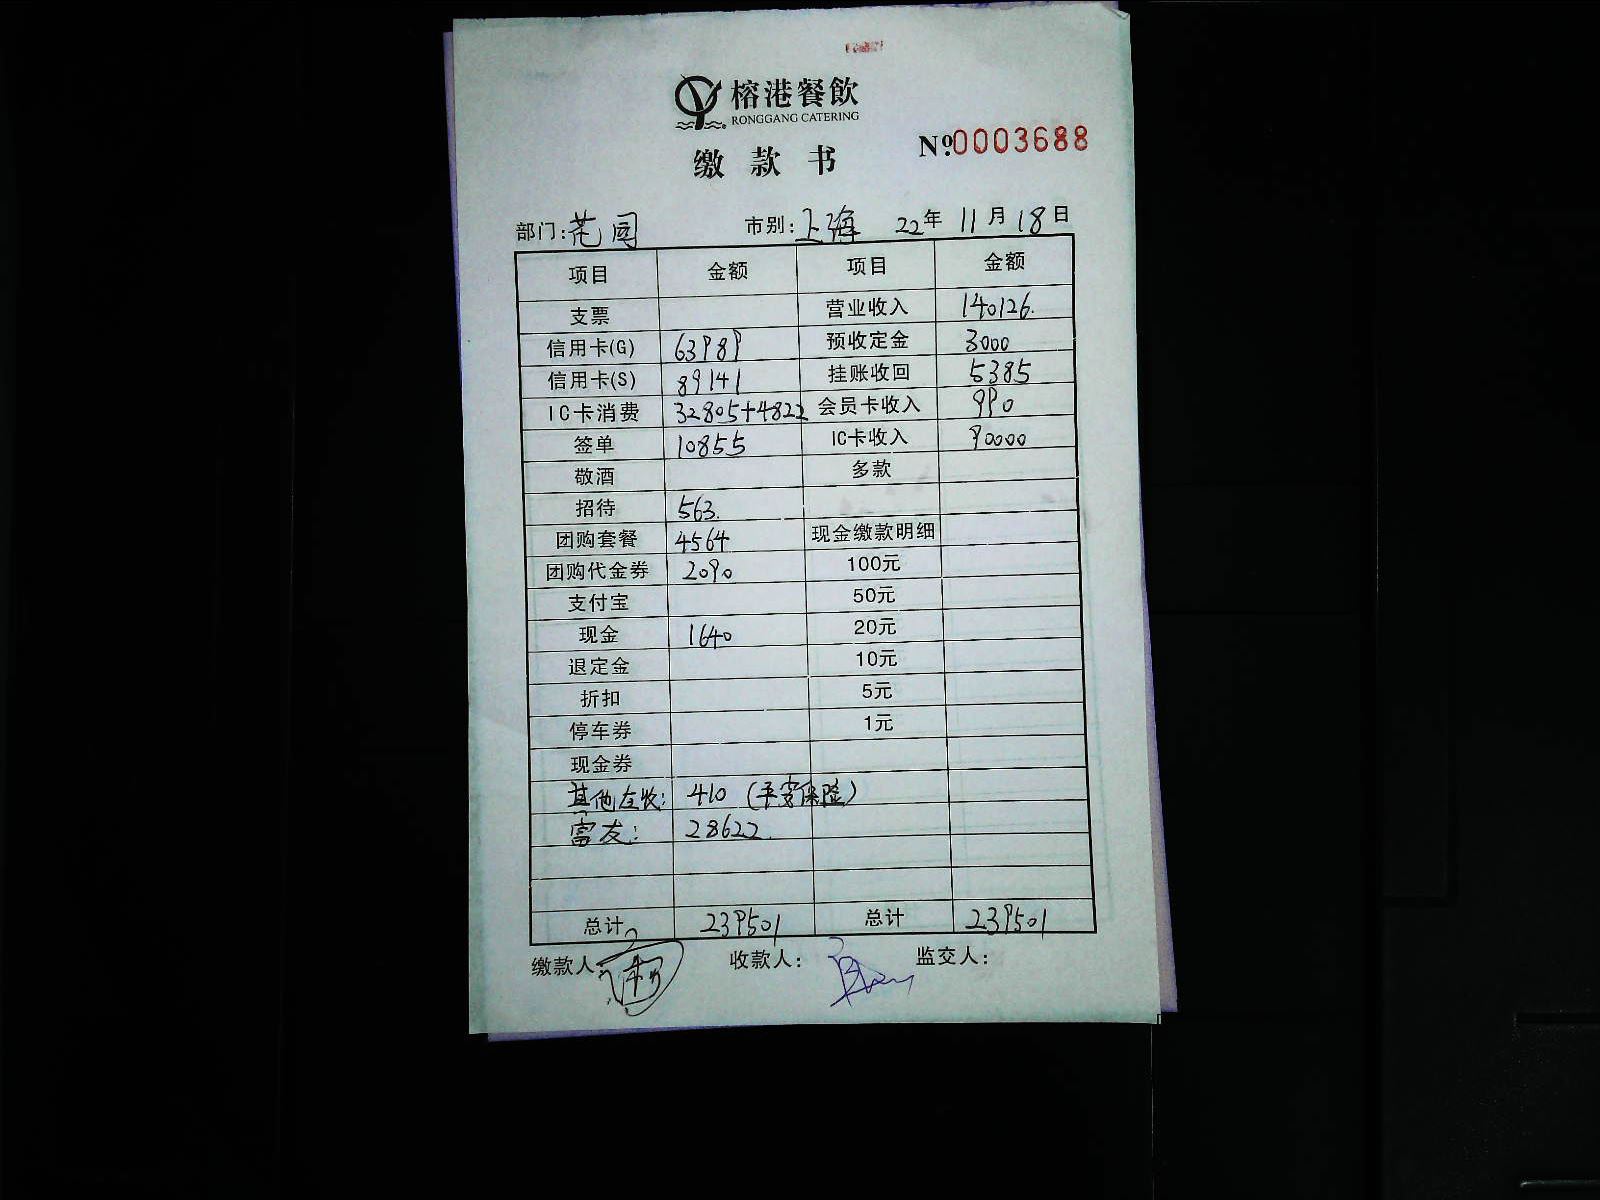 榕港餐飲
RONGGANG CATERING
缴款书
Nº0003688
部门:花园 市别:上海 22年11月18日
项目 金额 项目 金额
支票 营业收入 140126.
信用卡(G) 63989 预收定金 3000
信用卡(S) 89141 挂账收回 5385
IC卡消费 32805+4822 会员卡收入 990
签单 10855 IC卡收入 90000
敬酒 多款
招待 563.
团购套餐 4564 现金缴款明细
团购代金券 2090 100元
支付宝 50元
现金 1640 20元
退定金 10元
折扣 5元
停车券 1元
现金券
其他应收: 410 (平安保险)
富友: 28622.
总计 239501 总计 239501
缴款人: 收款人: 监交人: